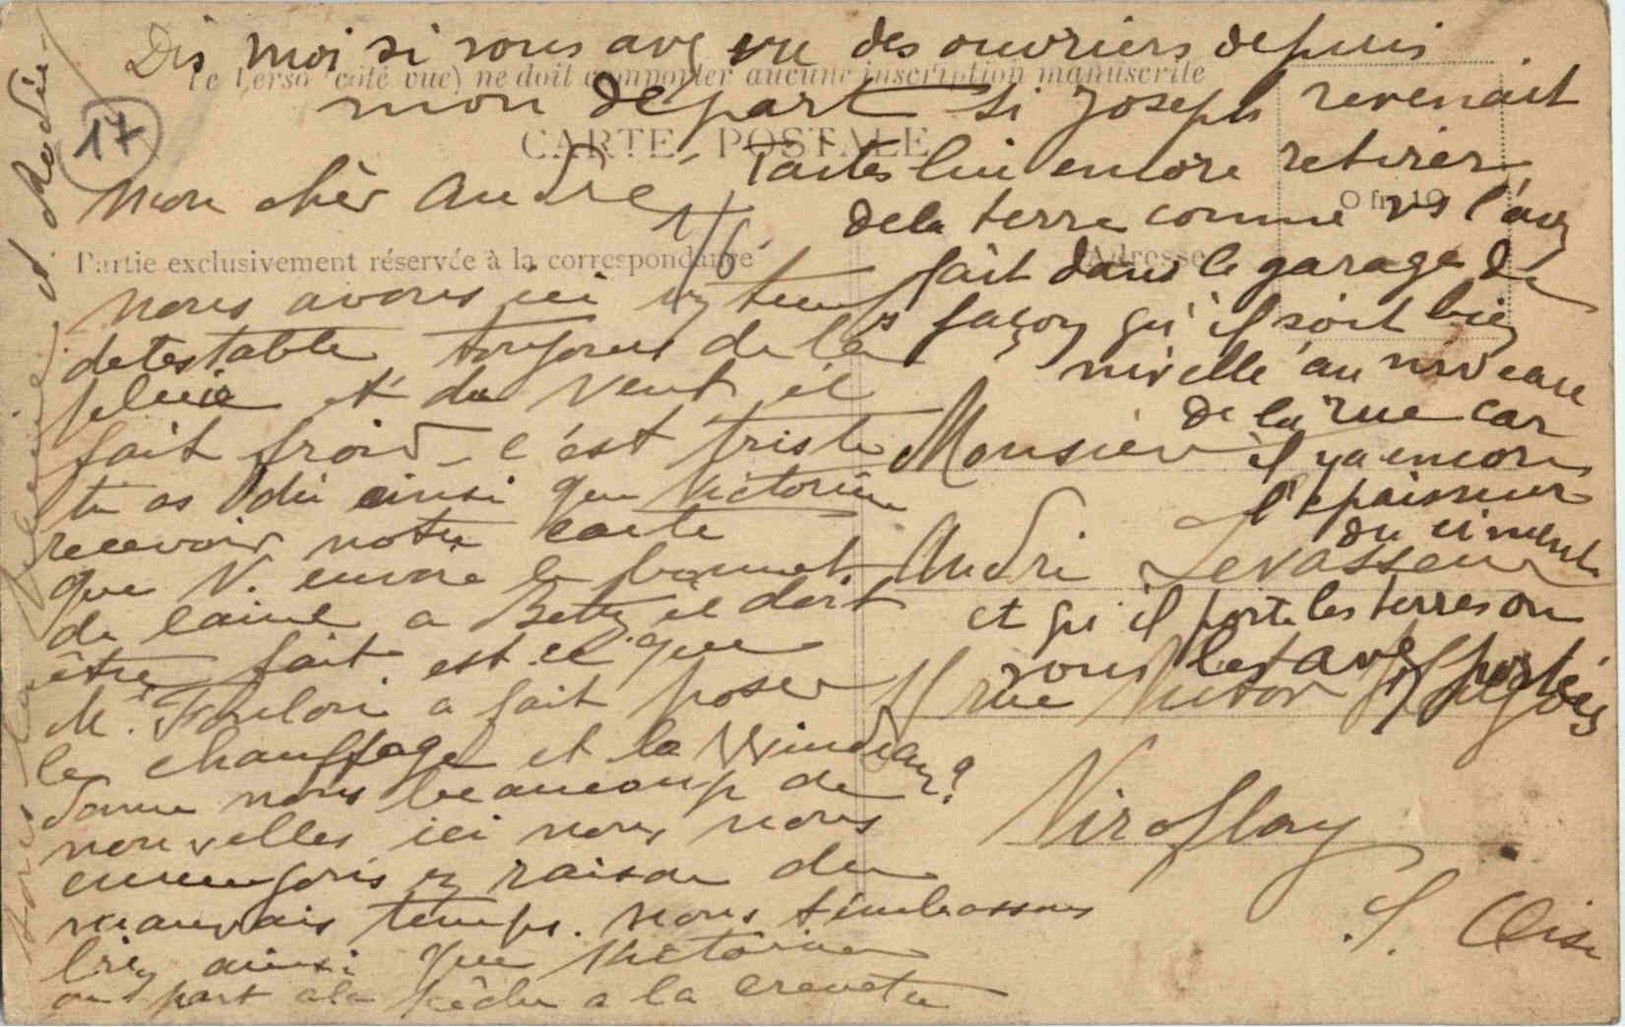 Dis moi si vous avez vu des ouvriers depuis
(Le Verso côté vue) ne doit comporter aucune inscription manuscrite
mon départ si Joseph revenait
CARTE POSTALE
17
faites lui encore retirer
0 fr. 10
de la terre comme vs l'avez
Adresse
fait dans le garage de
façon qu'il soit bien
nivellé au niveau
de la rue car
il y a encore
l'épaisseur
du ciment
et qu'il porte les terres ou
vous les avez portées
Mon chèr André
1/6
Partie exclusivement réservée à la correspondance
nous avons ici un temps
detestable toujours de la
pluie et du vent il
fait froid - c'est triste
tu as dû ainsi que Victorine
recevoir notre carte
que V. envoie le bonnet
de laine a Betty il doit
être fait est ce que
M. a fait poser
le chauffage et la
Donne nous beaucoup de
nouvelles ici nous nous
ennuyons en raison du
mauvais temps. Nous t'embrassons
bien ainsi que Victorine
on part à la pêche a la crevette
Monsieur
André Levasseur
rue Victor Hugo
Viroflay
S. Oise